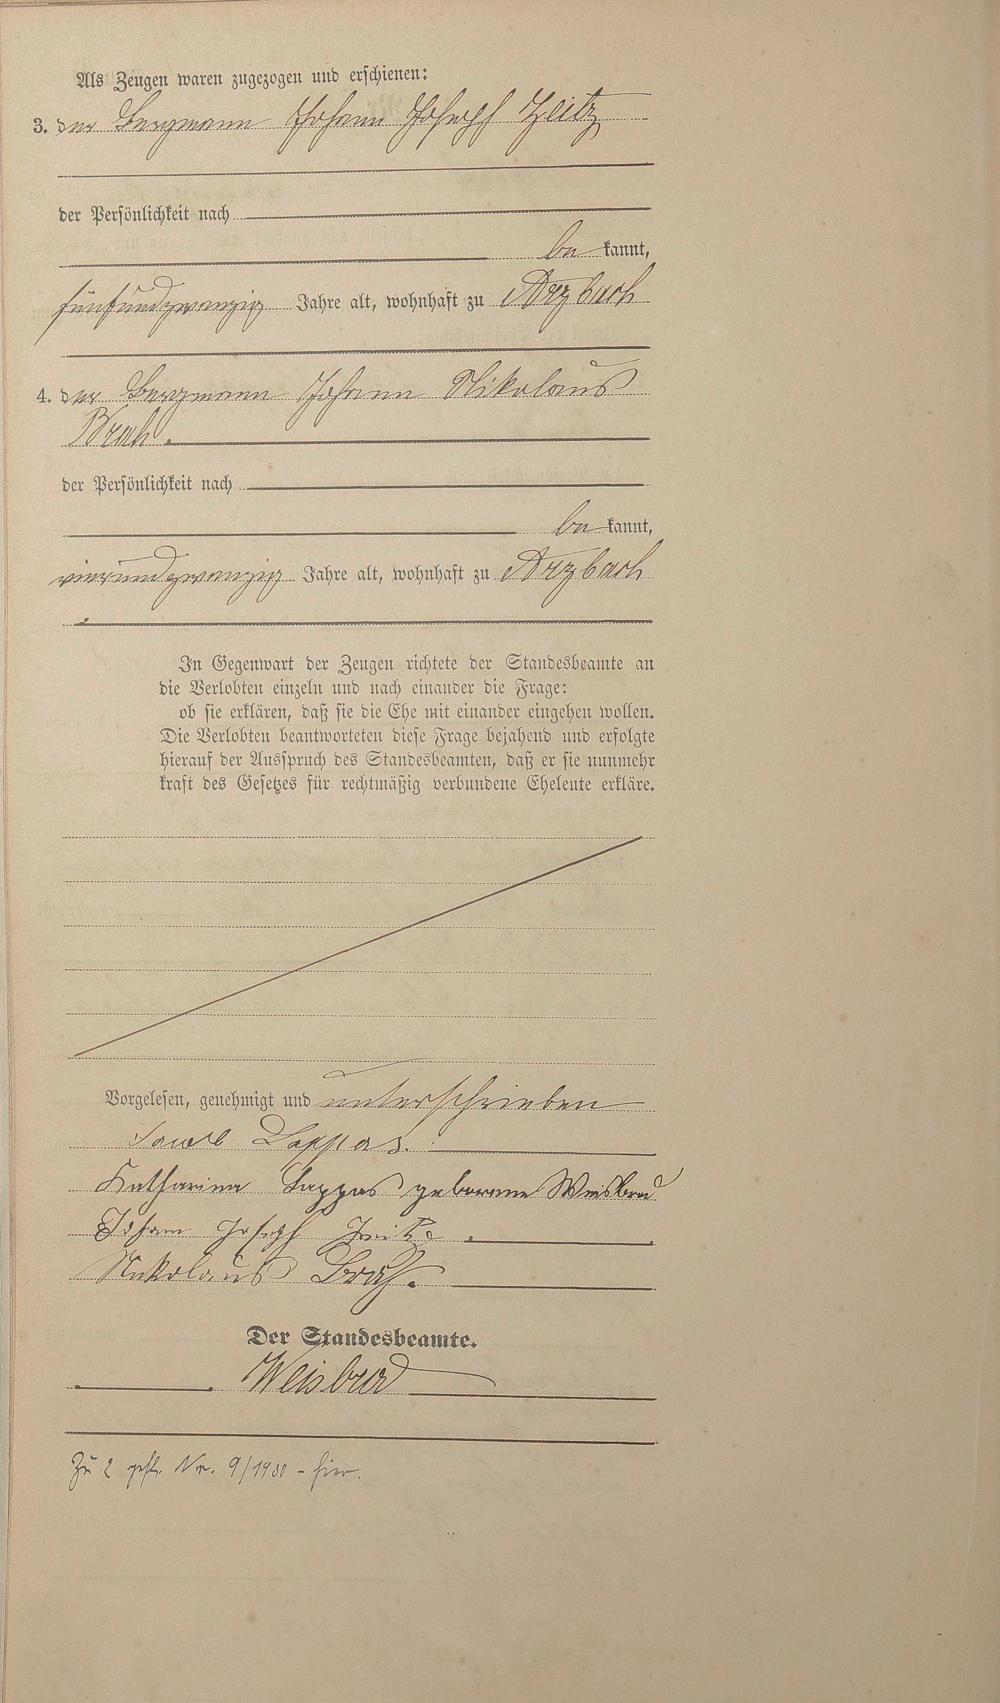 Als Zeugen waren zugezogen und erschienen:
3. der Bergmann Johann Joseph Zeitz
der Persönlichkeit nach
be kannt,
fünfundzwanzig Jahre alt, wohnhaft zu Arzbach
4. der Bergmann Johann Nikolaus
Brach.
der Persönlichkeit nach
be kannt,
vierundzwanzig Jahre alt, wohnhaft zu Arzbach
.
In Gegenwart der Zeugen richtete der Standesbeamte an
die Verlobten einzeln und nach einander die Frage:
ob sie erklären, daß sie die Ehe mit einander eingehen wollen.
Die Verlobten beantworteten diese Frage bejahend und erfolgte
hierauf der Ausspruch des Standesbeamten, daß er sie nunmehr
kraft des Gesetzes für rechtmäßig verbundene Eheleute erkläre.
Vorgelesen, genehmigt und unterschrieben
Lappas.
Katharina Lappas geborene Weisbrod
Johann Joseph
Nikolaus Brach.
Der Standesbeamte.
Weisbrod
Zu 2 gest. Nr. 9/1930 - hier.